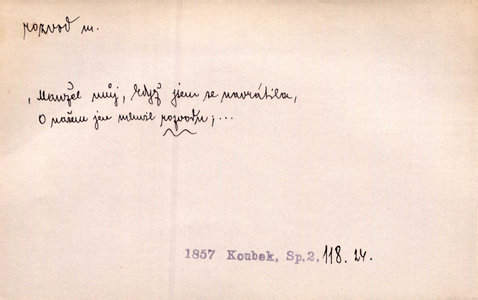 rozvod m.
„Manžel můj, když jsem se navrátila,
O našem jen mluvil rozvodu;...
1857 Koubek, Sp.2. 118. 24.